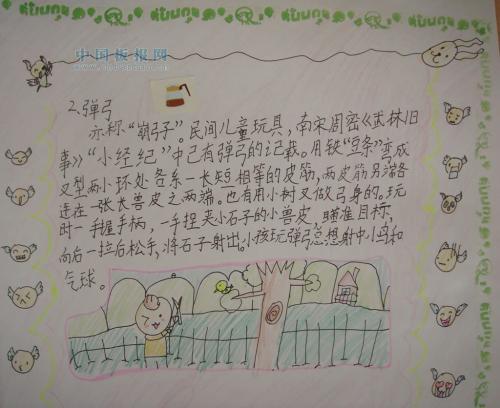 中国板报网
2.弹弓
亦称“崩弓子”。民间儿童玩具，南宋周密《武林旧
事》“小经纪”中已有弹弓的记载。用铁“豆条”弯成
叉型两小环处各系一长短相等的皮筋，两皮筋另端各
连在一张长兽皮之两端。也有用小树叉做弓身的。玩
时一手握手柄，一手捏夹小石子的小兽皮，瞄准目标，
向后一拉后松手，将石子射出。小孩玩弹弓总想射中小鸟和
气球。